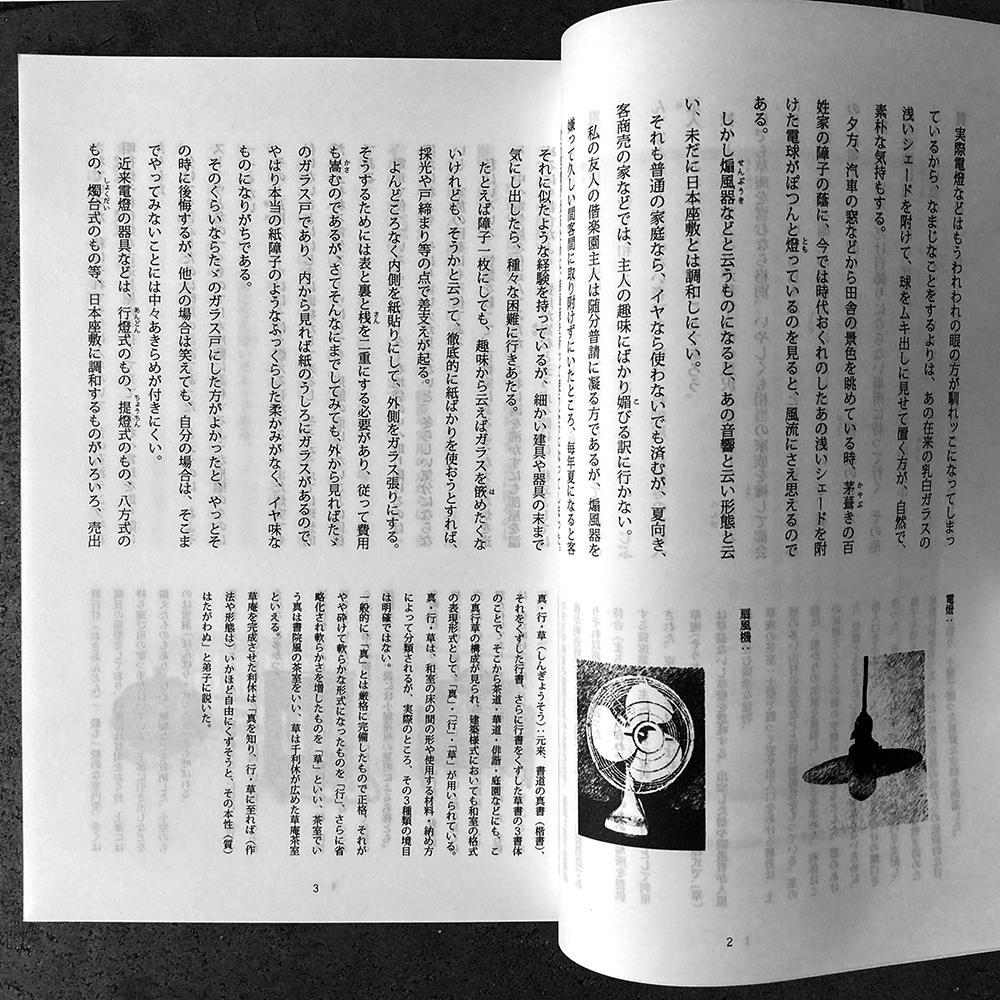 実際電燈などはもうわれわれの眼の方が馴れッこになってしまっ
ているから、なまじなことをするよりは、あの在来の乳白ガラスの
浅いシェードを附けて、球をムキ出しに見せて置く方が、自然で、
素朴な気持もする。
夕方、汽車の窓などから田舎の景色を眺めている時、茅葺きの百
姓家の障子の蔭に、今では時代おくれのしたあの浅いシェードを附
けた電球がぽつんと燈っているのを見ると、風流にさえ思えるので
ある。
しかし煽風器などと云うものになると、あの音響と云い形態と云
い、未だに日本座敷とは調和しにくい。
それも普通の家庭なら、イヤなら使わないでも済むが、夏向き、
客商売の家などでは、主人の趣味にばかり媚びる訳に行かない。
私の友人の偕楽園主人は随分普請に凝る方であるが、煽風器を
嫌って久しい間客間に取り附けずにいたところ、毎年夏になると客
電燈：
扇風機：
2
それに似たような経験を持っているが、細かい建具や器具の末まで
気にし出したら、種々な困難に行きあたる。
たとえば障子一枚にしても、趣味から云えばガラスを篏めたくな
いけれども、そうかと云って、徹底的に紙ばかりを使おうとすれば、
採光や戸締まり等の点で差支えが起る。
よんどころなく内側を紙貼りにして、外側をガラス張りにする。
そうするためには表と裏と桟を二重にする必要があり、従って費用
も嵩むのであるが、さてそんなにまでしてみても、外から見ればたゞ
のガラス戸であり、内から見れば紙のうしろにガラスがあるので、
やはり本当の紙障子のようなふっくらした柔かみがなく、イヤ味な
ものになりがちである。
そのくらいならたゞのガラス戸にした方がよかったと、やっとそ
の時に後悔するが、他人の場合は笑えても、自分の場合は、そこま
でやってみないことには中々あきらめが付きにくい。
近来電燈の器具などは、行燈式のもの、提燈式のもの、八方式の
もの、燭台式のもの等、日本座敷に調和するものがいろいろ、売出
真・行・草（しんぎょうそう）：元来、書道の真書（楷書）、
それをくずした行書、さらに行書をくずした草書の３書体
のことで、そこから茶道・華道・俳諧・庭園などにも、こ
の真行草の構成が見られ、建築様式においても和室の格式
の表現形式として、「真」・「行」・「草」が用いられている。
真・行・草は、和室の床の間の形や使用する材料・納め方
によって分類されるが、実際のところ、その３種類の境目
は明確ではない。
一般的に、「真」とは厳格に完備したもので正格、それが
やや砕けて軟らかな形式になったものを「行」、さらに省
略化され軟らかさを増したものを「草」といい、茶室でい
う真は書院風の茶室をいい、草は千利休が広めた草庵茶室
といえる。
草庵を完成させた利休は「真を知り、行・草に至れば（作
法や形態は）いかほど自由にくずそうと、その本性（質）
はたがわぬ」と弟子に説いた。
3